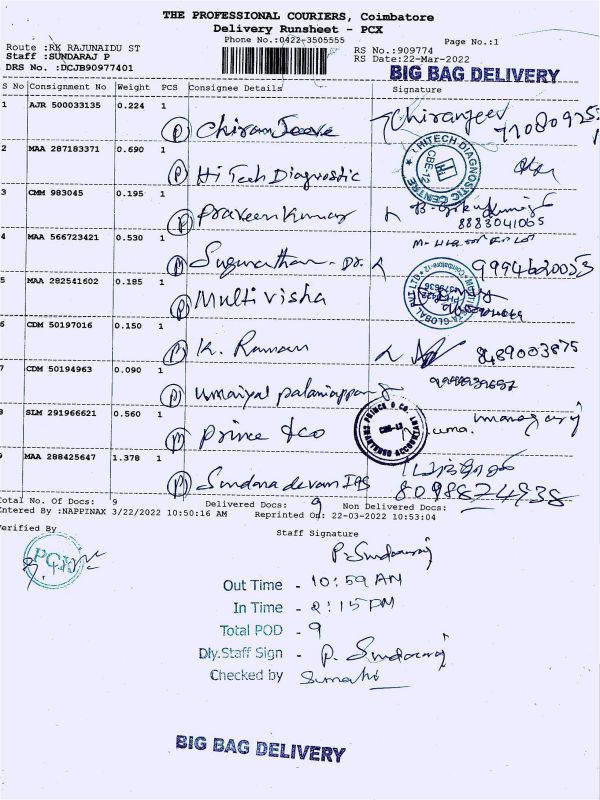 THE PROFESSIONAL COURIERS, Coimbatore
Delivery Runsheet - PCX
Phone No.:0422-3505555
Page No.:1
Route :RK RAJUNAIDU ST
RS No.:909774
Staff :SUNDARAJ P
RS Date:22-Mar-2022
DRS No. :DCJB90977401
BIG BAG DELIVERY
S No Consignment No Weight PCS Consignee Details Signature
1 AJR 500033135 0.224 1
P Chiranjeevi Chiranjeev
2 MAA 287183371 0.690 1
P Hi Tech Diagnostic
HITECH DIAGNOSTIC CENTRE CBE-12
3 CMM 983045 0.195 1
P Praveen Kumar
8883041065
4 MAA 566723421 0.530 1
P Sugunathan. Dr.
5 MAA 282541602 0.185 1
P Multi visha
6 CDM 50197016 0.150 1
P K. Raman 8489003875
7 CDM 50194963 0.090 1
P Umaiyal palaniappan
8 SLM 291966621 0.560 1
P Prince & co
PRINCE & CO. CHARTERED ACCOUNTANTS CBE-12
uma.
9 MAA 288425647 1.378 1
P Sundara devam IAS
8098874938
Total No. Of Docs: 9 Delivered Docs: 9 Non Delivered Docs:
Entered By :NAPPINAX 3/22/2022 10:50:16 AM Reprinted On: 22-03-2022 10:53:04
Verified By
Staff Signature
PCX
P. Sundararaj
Out Time - 10:59 AM
In Time - 2:15 PM
Total POD - 9
Dly.Staff Sign - P. Sundararaj
Checked by Sumathi
BIG BAG DELIVERY